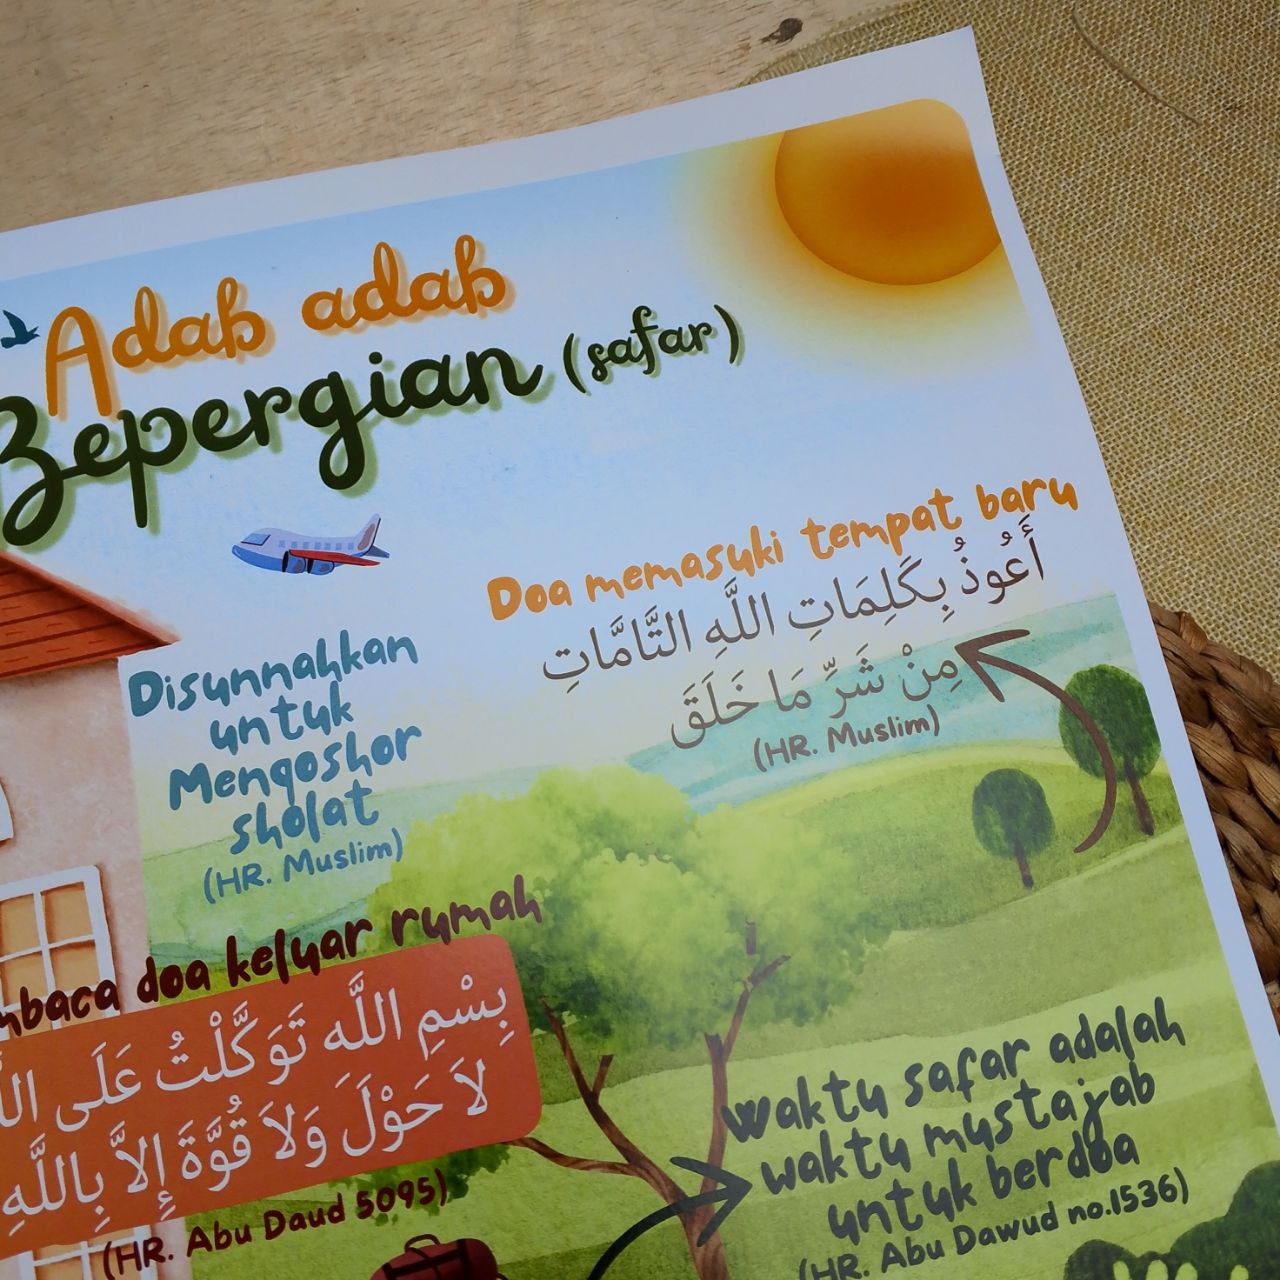 Adab adab
Bepergian (safar)
Doa memasuki tempat baru
أَعُوذُ بِكَلِمَاتِ اللَّهِ التَّامَّاتِ
مِنْ شَرِّ مَا خَلَقَ
(HR. Muslim)
Disunnahkan
untuk
Mengoshor
sholat
(HR. Muslim)
doa keluar rumah
بِسْمِ اللَّهِ تَوَكَّلْتُ عَلَى
لاَ حَوْلَ وَلاَ قُوَّةَ إِلاَّ بِاللَّهِ
(HR. Abu Daud 5095)
Waktu safar adalah
waktu mustajab
untuk berdoa
(HR. Abu Dawud no.1536)